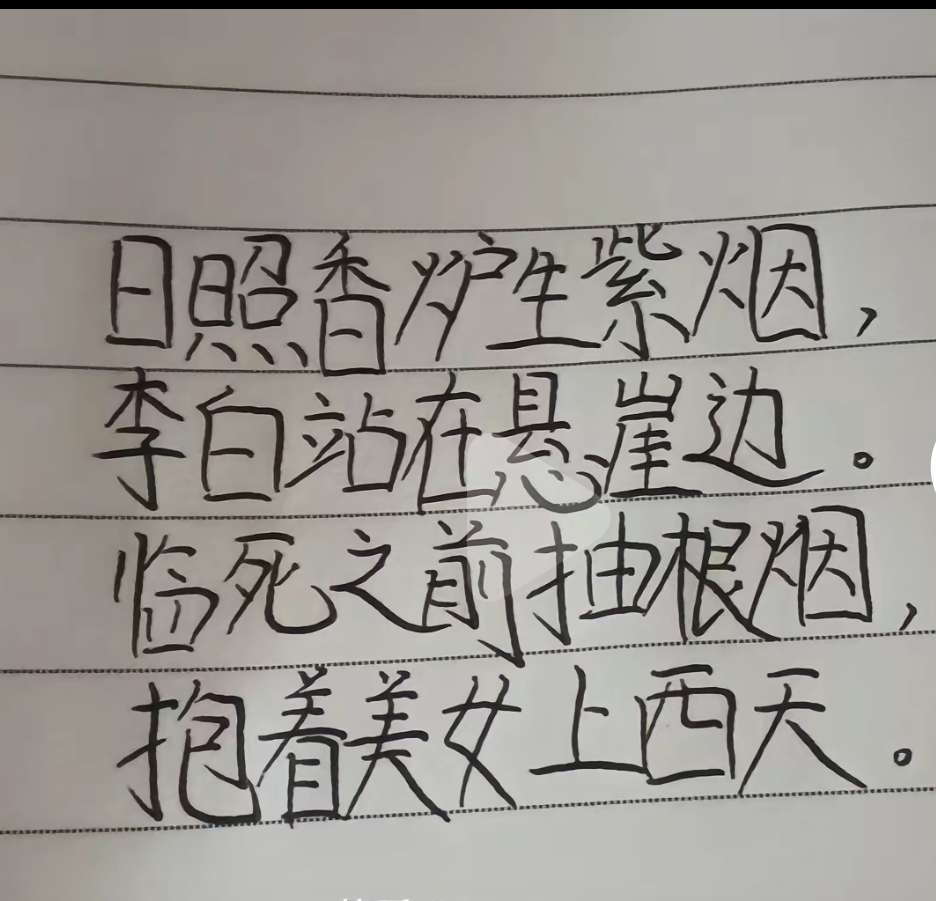 日照香炉生紫烟，
李白站在悬崖边。
临死之前抽根烟，
抱着美女上西天。